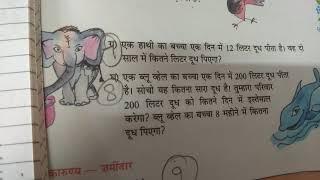 एक हाथी का बच्चा एक दिन में 12 लिटर दूध पीता है। वह दो
साल में कितने लिटर दूध पिएगा?
एक ब्लू व्हेल का बच्चा एक दिन में 200 लिटर दूध पीता
है। सोचो वह कितना सारा दूध है। तुम्हारा परिवार
200 लिटर दूध को कितने दिन में इस्तेमाल
करेगा? ब्लू व्हेल का बच्चा 8 महीने में कितना
दूध पिएगा?
8
9